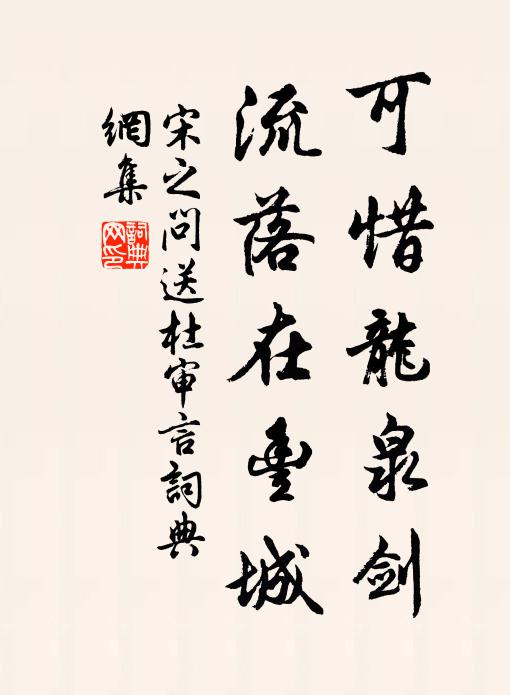 可惜龍泉剑
流落在豊城
宋之问送杜审言詞典
網集
詞典
网印